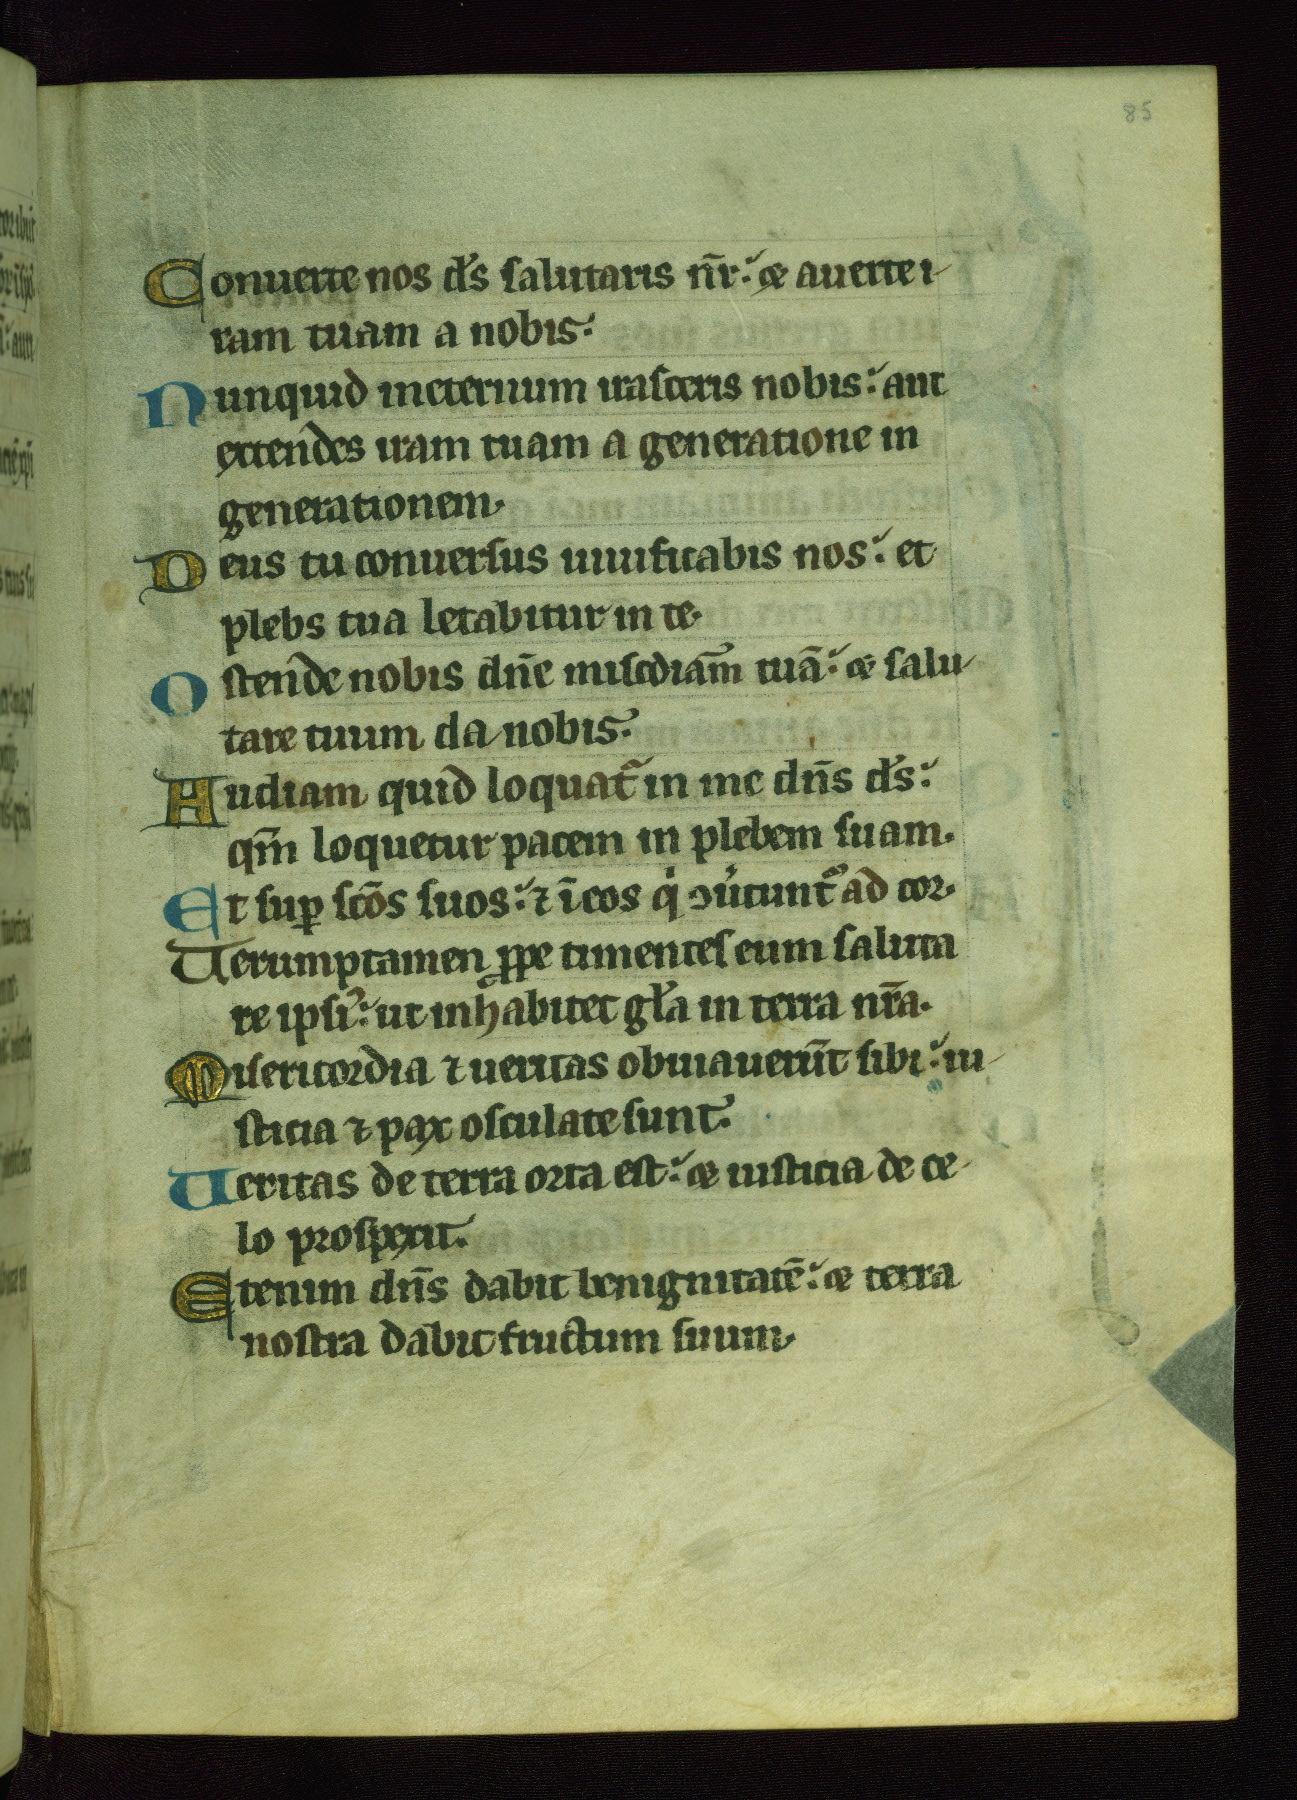 85
Conuerte nos ds̄ salutaris nr̄: et auerte i
ram tuam a nobis.
Nunquid ineternum irasceris nobis: aut
extendes iram tuam a generatione in
generationem.
Deus tu conuersus uiuificabis nos: et
plebs tua letabitur in te.
Ostende nobis dn̄e miscd̄iam̄ tuā: et salu
tare tuum da nobis.
Audiam quid loquat᷑ in me dn̄s ds̄:
qm̄ loquetur pacem in plebem suam.
Et suꝑ scōs suos: ⁊ ī eos qͥ ɔu̾tunt᷑ ad cor.
Uerumptamen ꝓpe timentes eum saluta
re ipsi᷒: ut inhabitet gl̄a in terra nr̄a.
Misericordia ⁊ ueritas obuiauerūt sibi: iu
sticia ⁊ pax osculate sunt.
Ueritas de terra orta est: et iusticia de ce
lo prospexit.
Etenim dn̄s dabit benignitatē: et terra
nostra dabit fructum suum.